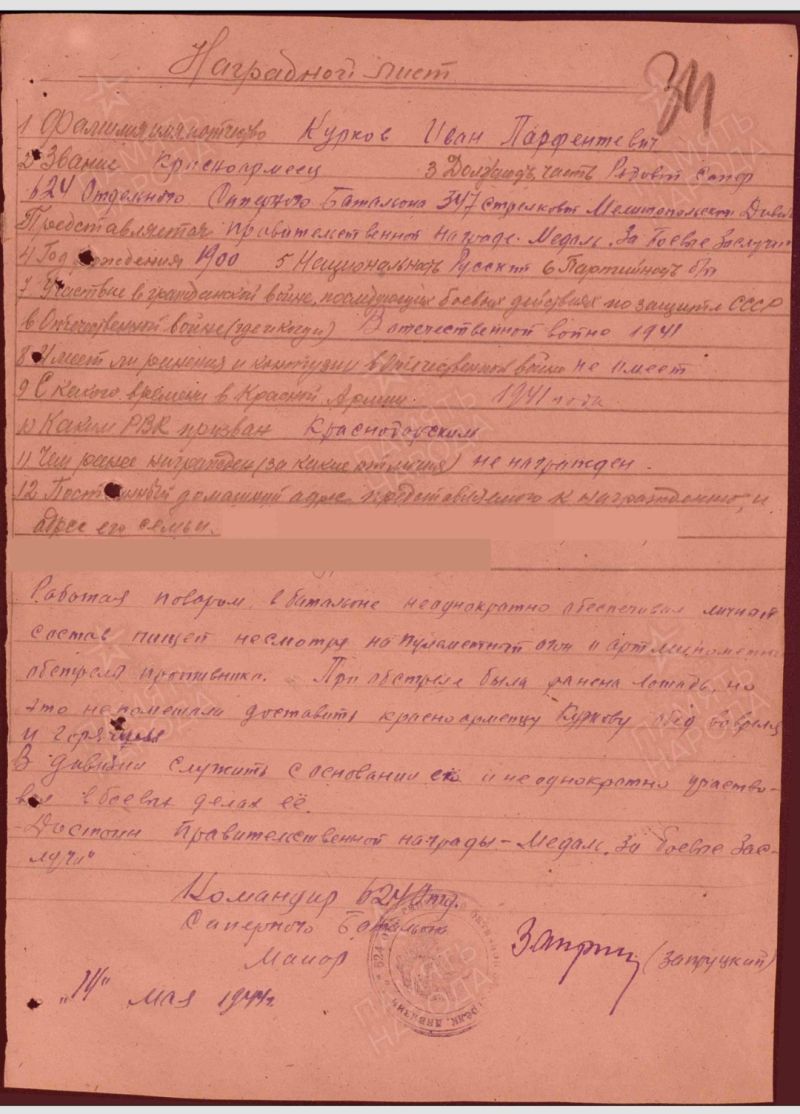 Наградной лист
34
1 Фамилия имя и отчество Курков Иван Парфентевич
2 Звание Красноармеец 3 Должность, часть Рядовой Сапер
624 Отдельного Саперного Баталиона 347 Стрелковой Мелитопольской Дивизии
Представляется правительственной награде Медаль "За Боевые Заслуги"
4 Год рождения 1900 5 Национальность Русский 6 Партийность б/п
7 Участие в гражданской войне, последующих боевых действиях по защите СССР
в Отечественной войне (где и когда) В отечественной войно 1941
8 Имеет ли ранения и контузии в Отечественной войне не имеет
9 С какого времени в Красной Армии 1941 года
10 Каким РВК призван Краснодарским
11 Чем ранее награжден (за какие отличия) не награжден.
12 Постоянный домашний адрес представляемого к награждению, и
адрес его семьи.
Работая поваром, в батальоне неоднократно обеспечивал личной
состав пищей несмотря на пулеметный огон и арт минометн
обстрел противника. При обстреле была ранена лошадь, но
это не помешало доставить красноармейцу Куркову обед вовремя
и горячим
В дивизии служить с основании её и неоднократно участво-
вал в боевых делах её.
Достоин Правительственной награды - Медаль "За боевые зас-
луги"
Командир 624 Отд.
Саперного Батальона
Майор (Запруцкий)
"14" мая 1944г.
ПАМЯТЬ НАРОДА